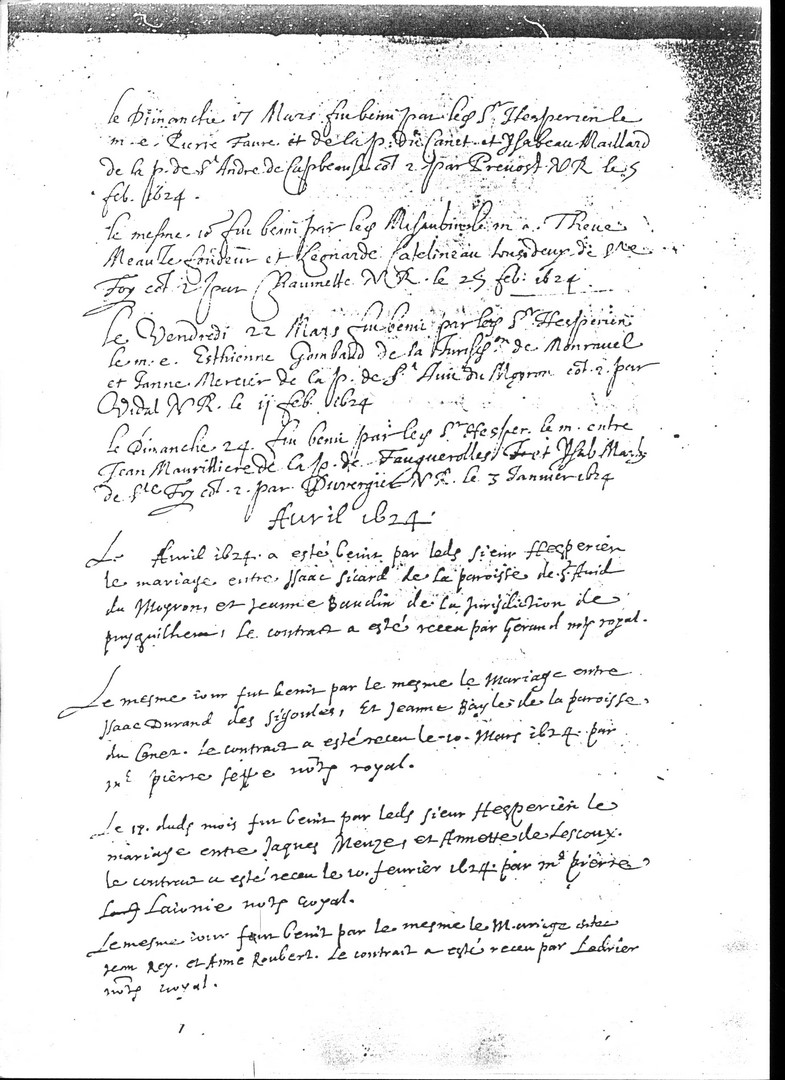 le Dimanche 17 Mars fut beni par led Sr Hesperien le
m. e. Pierre Faure et de la p. du Canet et Ysabeau Maillard
de la p. de St Andre de cot 2 par Prevost N R le 5
feb. 1624.
le mesme io fut beni par led le m. a. Theue
Meauze fondeur et Leonarde Catelineau tous deux de Ste
Foy cot 2 par Raumette N R. le 25 feb. 1624
Le Vendredi 22 Mars fut beni par led Sr Hesperien
le m. e. Esthienne Gombaud de la Jurisd.on de Monravel
et Janne Mercier de la p. de St Avit du Moyron cot. 2. par
Vidal N R. le 11 feb. 1624
le Dimanche 24. fut beni par led Sr Hesper. le m. entre
Jean Maurilliere de la p. de Fauguerolles et Ysab.
de Ste Foy cot. 2. par Duvergier N R. le 3 Janvier 1624
Avril 1624.
Le Avril 1624. a esté benit par leds sieur Hesperien
le mariage entre Isaac Sicard de la paroisse de St Avid
du Moyron, et Jeanne Baudin de la Jurisdiction de
puyguilhem, Le contract a esté receu par Geraud notr royal.
Le mesme iour fut benit par le mesme le Mariage entre
Isaac Durand des Sigoules, Et Jeanne Bayle de la paroisse
du Canet. Le contract a esté receu le 10. Mars 1624. par
me pierre notre royal.
Le 18. duds mois fut benit par leds sieur Hesperien le
mariage entre Jaques Meuze, et Annette de Lescoux.
le contract a esté receu le 10. fevrier 1624. par me pierre
Laionie notre royal.
Le mesme iour fut benit par le mesme le Mariage entre
Jean Rey. et Anne Roubert. Le contract a esté receu par Ladvier
notre royal.